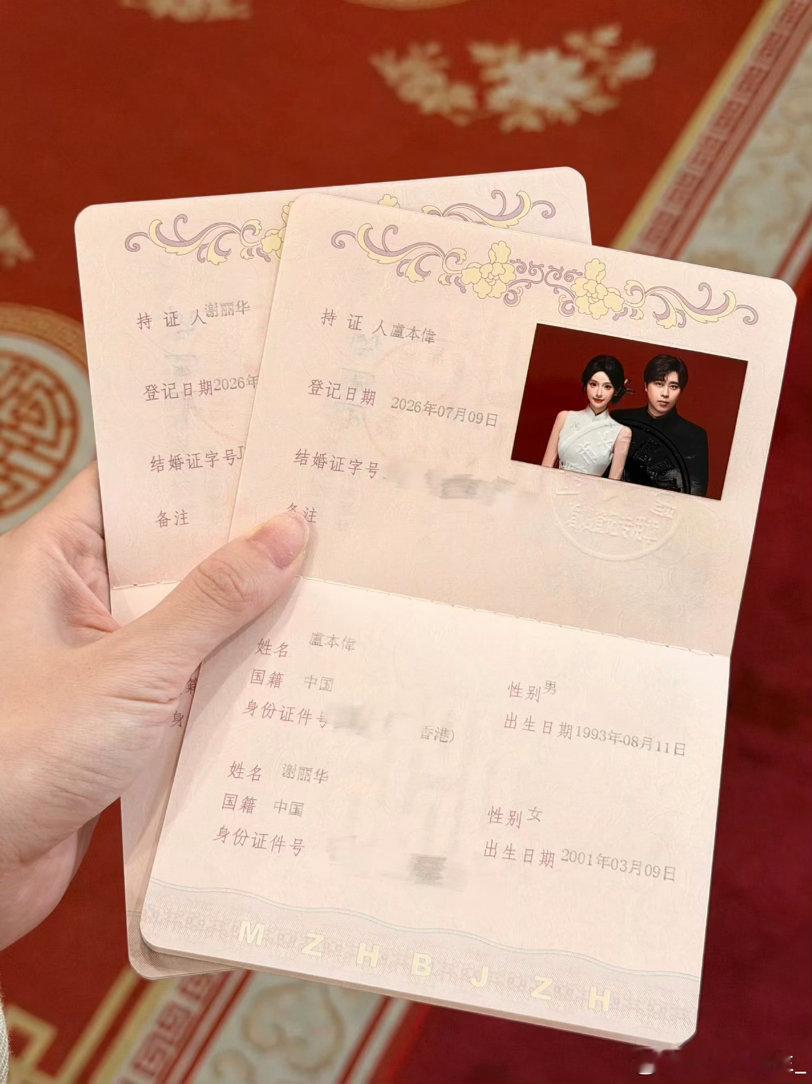 持证人谢丽华
登记日期2026年
结婚证字号J
备注
持证人盧本偉
登记日期 2026年07月09日
结婚证字号
备注
姓名 盧本偉
国籍 中国 性别男
身份证件号 香港) 出生日期1993年08月11日
姓名 谢丽华
国籍 中国 性别女
身份证件号 出生日期2001年03月09日
MZHBJZH